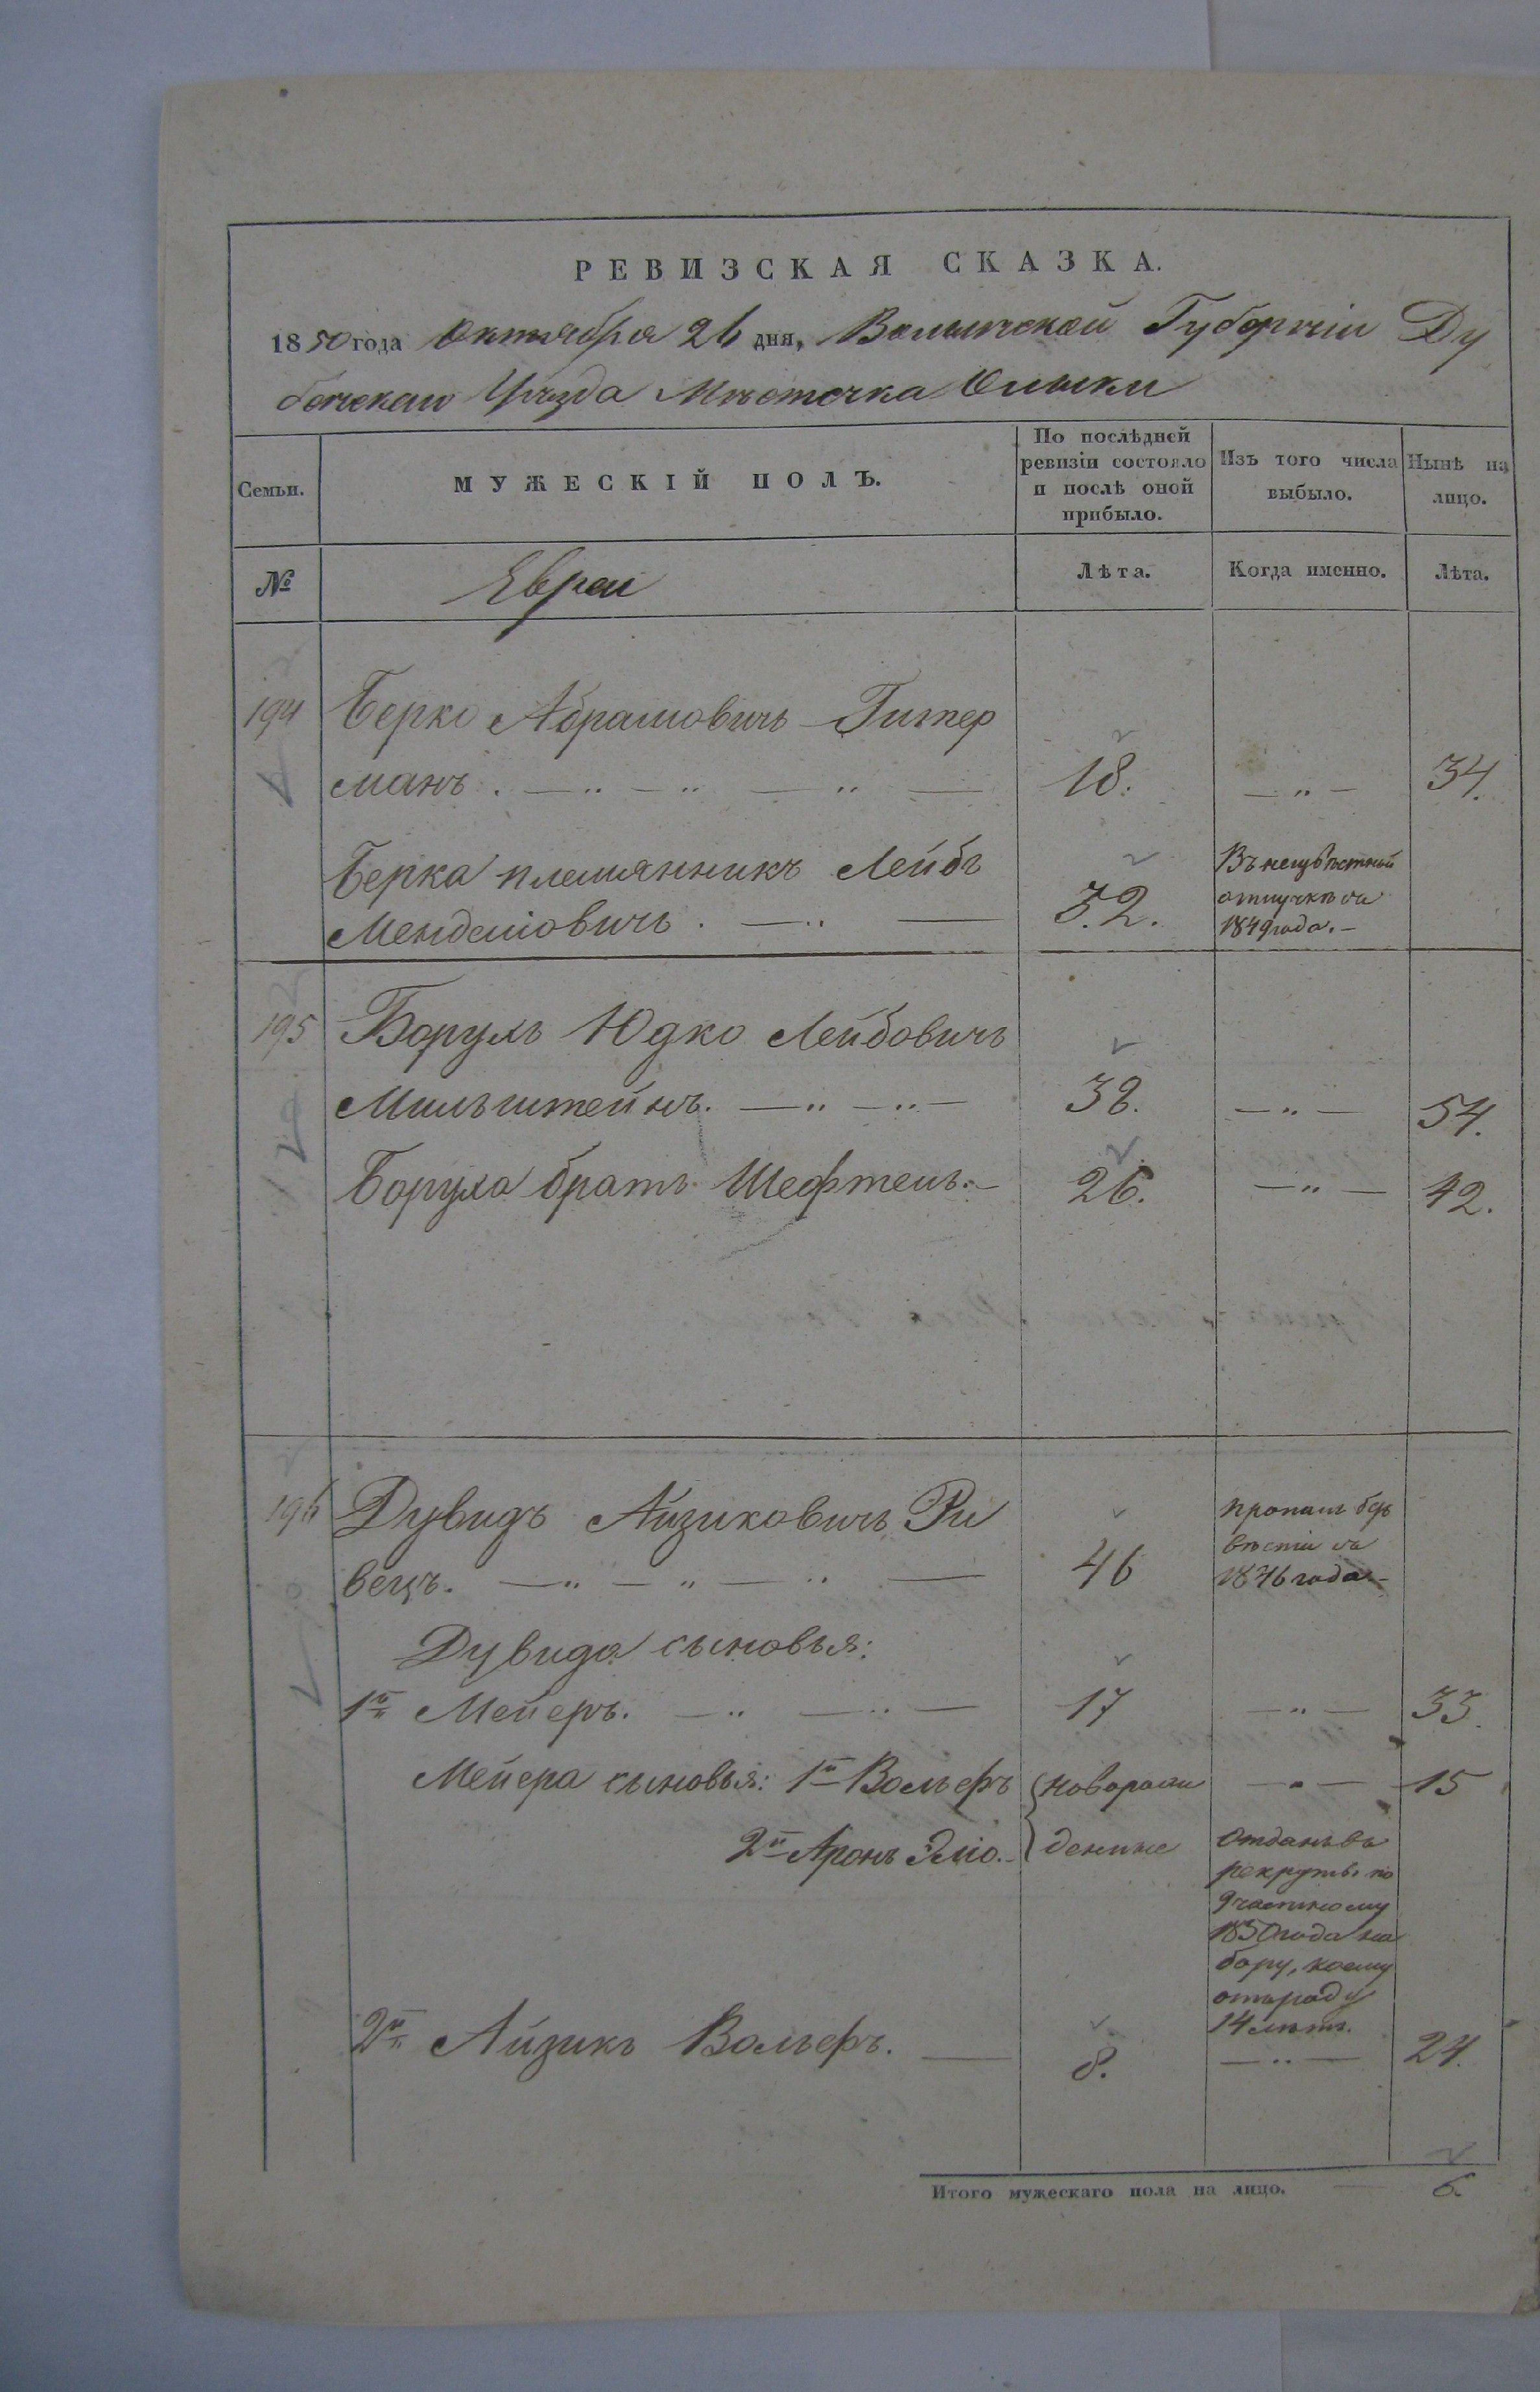 РЕВИЗСКАЯ СКАЗКА.
1850 года Октября 26 дня, Волынской Губерніи Ду
бенскаго Уѣзда Мѣстечка Олыки
Семьи. МУЖЕСКІЙ ПОЛЪ. По послѣдней ревизіи состояло и послѣ оной прибыло. Изъ того числа выбыло. Нынѣ на лицо.
№ Евреи Лѣта. Когда именно. Лѣта.
194 Берко Абрамовичъ Гитер
манъ. — „ — „ — „ — 18. — „ — 34.
Берка племянникъ Лейбъ
Менделіовичъ. — „ — 32. Въ неизвѣстной
отлучкѣ съ
1849 года. —
195 Борухъ Юдко Лейбовичъ
Мильштейнъ. — „ — „ — 38. — „ — 54.
Боруха братъ Шефтель. — 26. — „ — 42.
196 Дувидъ Айзиковичъ Ри
вецъ. — „ — „ — „ — 46 пропалъ безъ
вѣсти съ
1846 года —
Дувида сыновья:
1й Мейеръ. — „ — „ — 17 — „ — 33.
Мейера сыновья: 1й Вольфъ новорож — „ — 15
2й Аронъ Эліо. — денные Отданъ въ
рекруты по
частному
1850 года на
бору, коему
отъ роду
14 лѣтъ.
2й Айзикъ Вольфъ. — 8. — „ — 24.
Итого мужескаго пола на лицо. — 6.